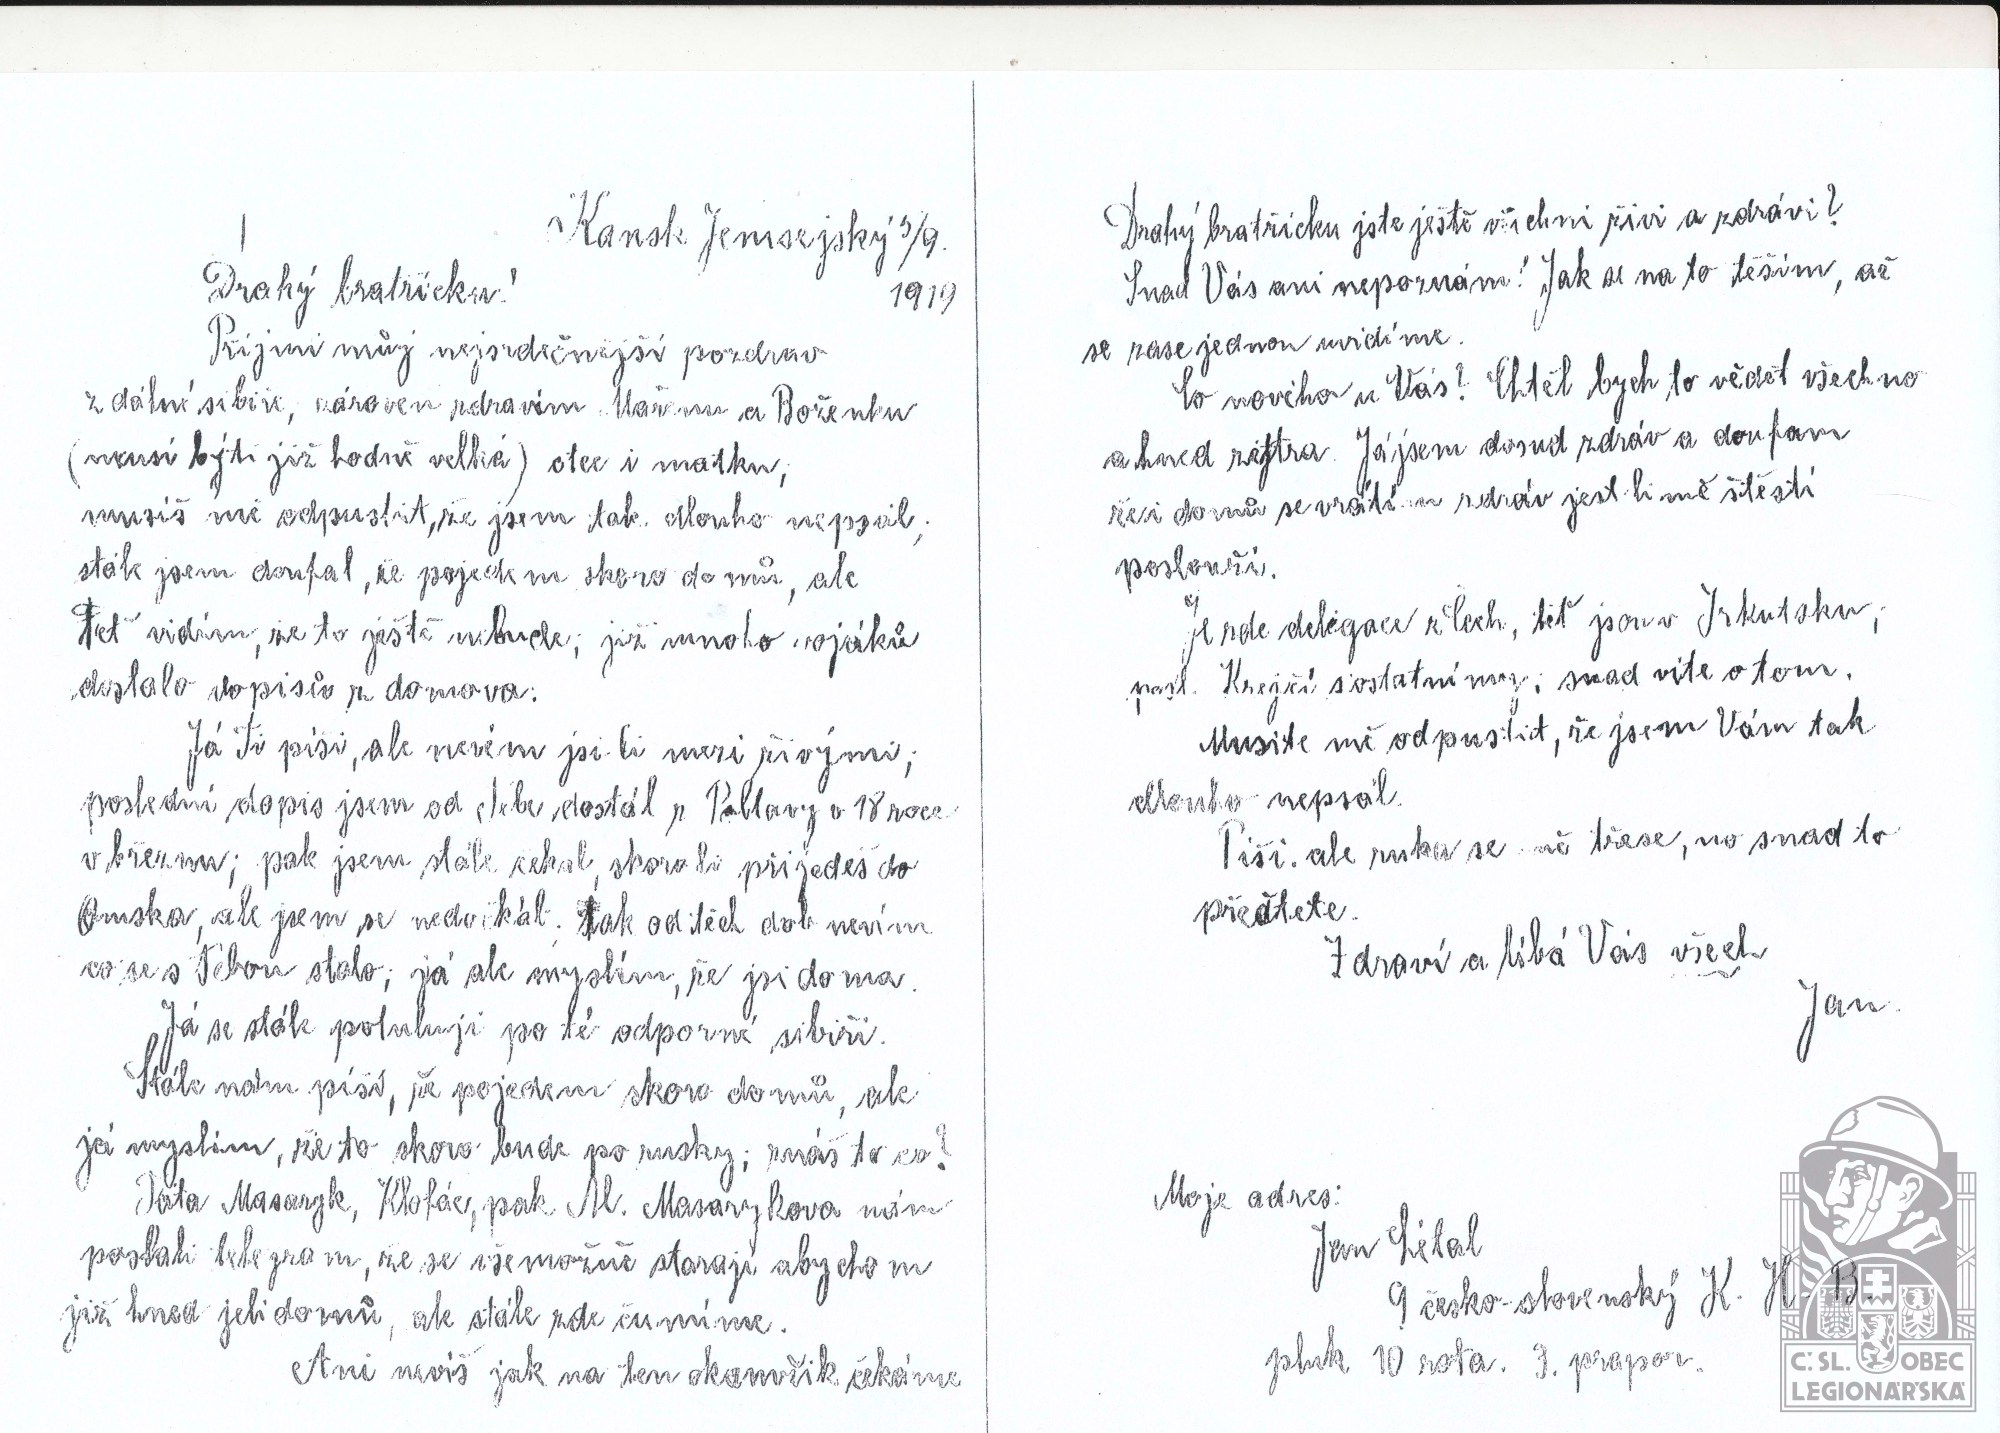 Kansk Jenisejský 3/9.
1919
Drahý bratříčku!
Přijmi můj nejsrdečnější pozdrav
z dálné sibiře, zároven zdravím Mářenu a Boženku
(musí býti již hodně velká) otce i matku,
musíš mě odpustit, že jsem tak dlouho nepsál,
stále jsem doufal, že pojedem skoro domů, ale
teť vidím, že to ještě nebude; již mnoho vojáků
dostalo dopisův z domova.
Já Ti píši, ale nevém jsi-li mezi živými;
poslední dopis jsem od Tebe dostál z Poltavy v 18 roce
v březnu; pak jsem stále čekal, skoro-li přijedeš do
Omska, ale jsem se nedočkál; tak od těch dob nevím
co se s Tebou stalo; já ale myslím, že jsi doma.
Já se stále potuluji po té odporné sibiři.
Stále nám píší, že pojedem skoro domů, ale
já myslím, že to skoro bude po rusky; znáš to co?
Táta Masaryk, Klofáč, pak Al. Masarykova nám
poslali telegram, že se všemožně starají abychom
již hned jeli domů, ale stále zde čumíme.
Ani nevíš jak na ten okamžik čekáme
Drahý bratříčku jste ještě všichni živi a zdrávi?
Snad Vás ani nepoznám! Jak se na to těším, až
se zase jednou uvidíme.
Co nového u Vás? Chtěl bych to vědět všechno
a hned zejtra. Já jsem dosud zdráv a doufam
že i domů se vrátím zdráv jest-li mě štěstí
poslouží.
Je zde delegace z Čech, teť jsou v Irkutsku;
posl. Krejčí s ostatními; snad víte o tom.
Musíte mě odpustit, že jsem Vám tak
dlouho nepsál.
Píši. ale ruka se mě třese, no snad to
přečtete.
Zdraví a líbá Vás všech
Jan.
Moje adres:
Jan Létal
9 česko-slovenský K. H. B.
pluk 10 rota. 3. prapor.
Č. SL. OBEC
LEGIONÁŘSKÁ